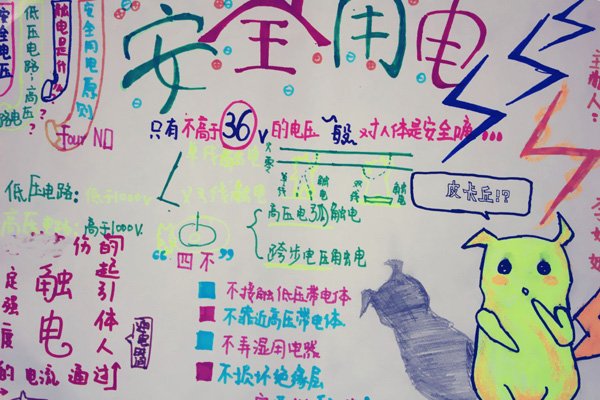 安全用电
安全电压
低压电路:高压?
触电是什么
安全用电原则
four NO
只有不高于36V的电压一般对人体是安全哦...
单线触电
双线触电
火
零
单线
触电
双线
触电
低压电路:低于1000V
高压电路:高于1000V.
高压电弧触电
跨步电压触电
“四不”
不接触低压带电体
不靠近高压带电体
不弄湿用电器
不损坏绝缘层
皮卡丘!?
触电
引起的
人体
通过
的电流
定强度
主办人: